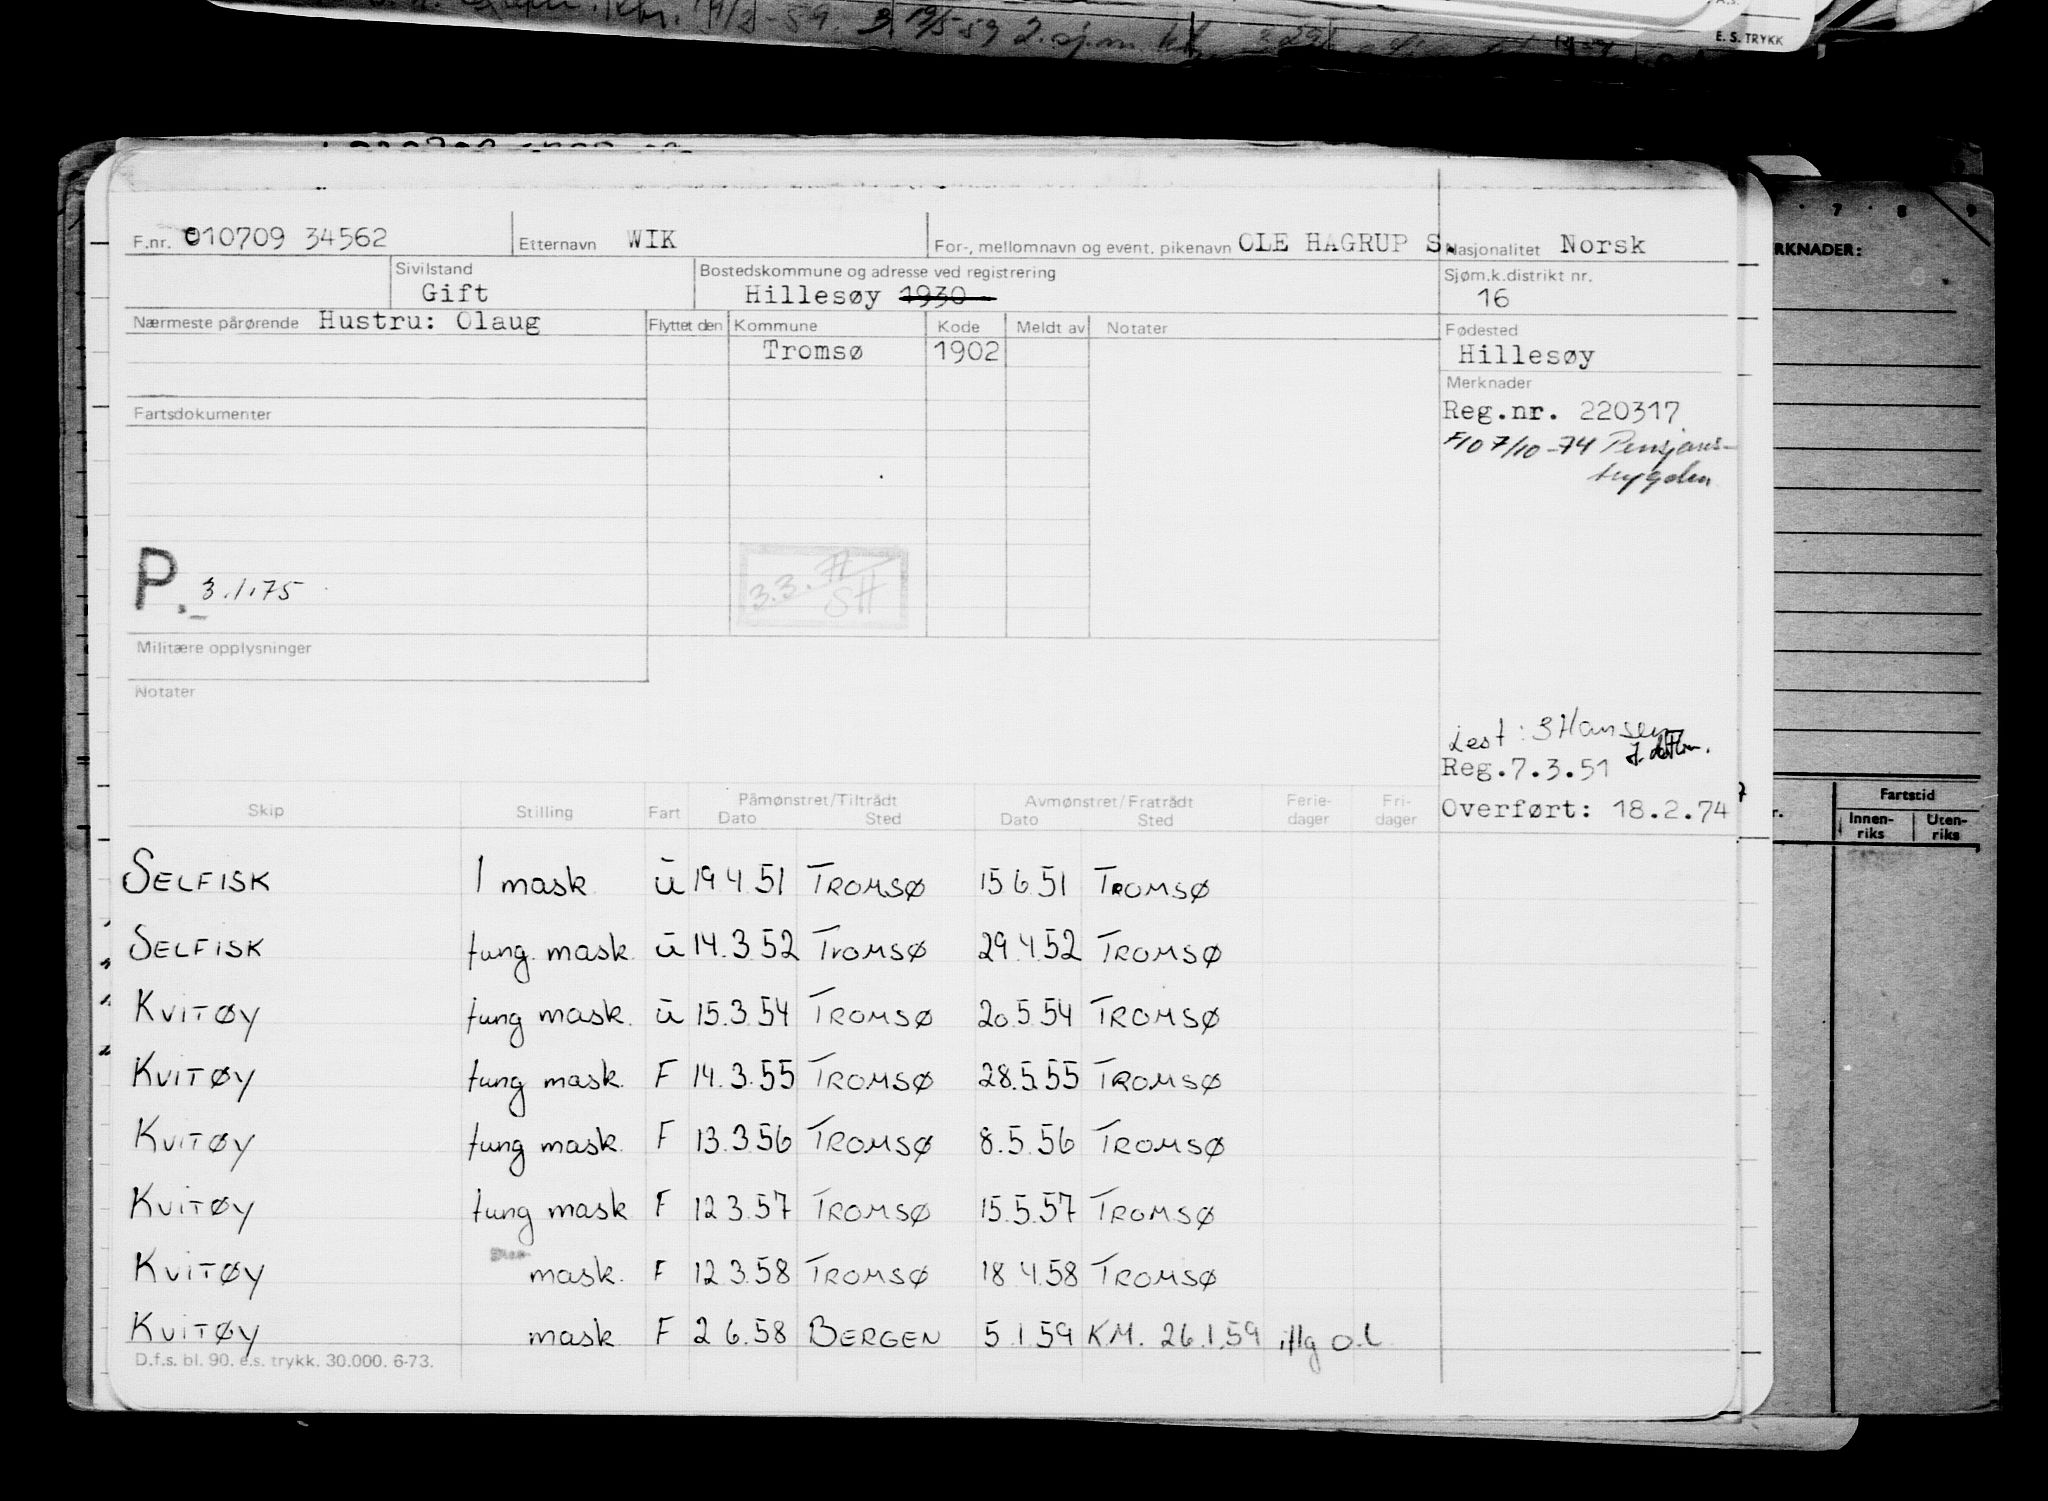 E. S. TRYKK
F.nr. 010709 34562 Etternavn WIK For-, mellomnavn og event. pikenavn OLE HAGRUP S. Nasjonalitet Norsk
Sivilstand Gift Bostedskommune og adresse ved registrering Hillesøy 1930 Sjøm.k.distrikt nr. 16
Nærmeste pårørende Hustru: Olaug Flyttet den Kommune Kode Meldt av Notater Fødested
Tromsø 1902 Hillesøy
Merknader
Fartsdokumenter Reg.nr. 220317
F10 7/10-74 Pensjons-
trygden
P. 3.1.75
3.3.
Militære opplysninger
Notater
Lest: S Hansen
Reg.7.3.51
Skip Stilling Fart Påmønstret/Tiltrådt Dato Sted Avmønstret/Fratrådt Dato Sted Ferie-dager Fri-dager Overført: 18.2.74
SELFISK 1 mask ū 19 4.51 TROMSØ 15 6.51 TROMSØ
SELFISK tung. mask. ū 14.3.52 TROMSØ 29.4.52 TROMSØ
KVITØY tung mask. ū 15.3.54 TROMSØ 20.5.54 TROMSØ
KVITØY tung mask. F 14.3.55 TROMSØ 28.5.55 TROMSØ
KVITØY tung mask. F 13.3.56 TROMSØ 8.5.56 TROMSØ
KVITØY tung mask F 12.3.57 TROMSØ 15.5.57 TROMSØ
KVITØY mask. F 12.3.58 TROMSØ 18.4.58 TROMSØ
KVITØY mask F 2 6.58 BERGEN 5.1.59 KM. 26.1.59 iflg o.l.
D.f.s. bl. 90. e.s. trykk. 30.000. 6-73.
7 8 9
RKNADER:
Fartstid
Innen-riks Uten-riks